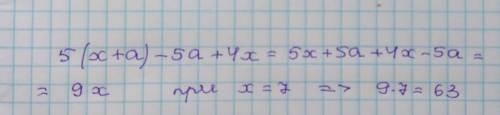 5(x+a)-5a+4x = 5x+5a+4x-5a=
= 9x при x=7 => 9·7=63